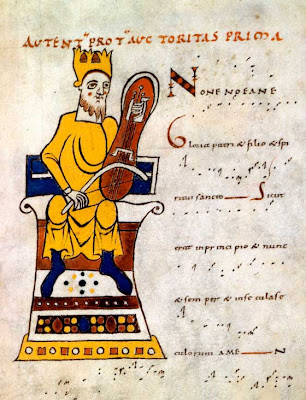 AUTENTꝰ PROTꝰ AUCTORITAS PRIMA
NONENOEANE
Gloria patri & filio & spi
ritui sancto Sicut
erat in principio & nunc
& semp & in secula se
culorum AMEN